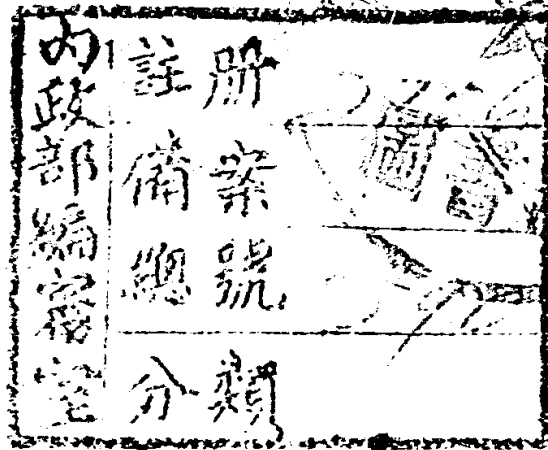 内政部編審室
註册
備案
總號
分類